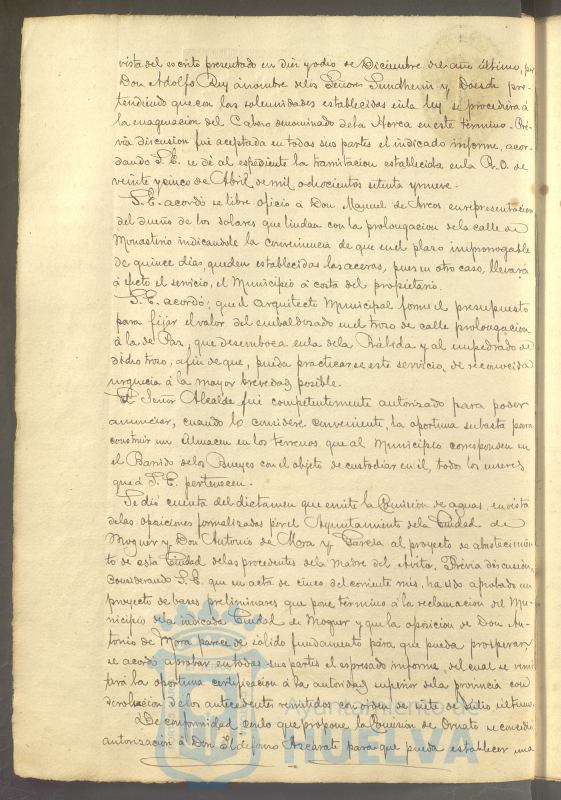 vista del escrito presentado en diez y ocho de Diciembre del año último, por
Don Adolfo Rey á nombre de los Señores Sundheim y Doesch pre-
tendiendo que con las solemnidades establecidas en la ley se procediera á
la enagenacion del Cabezo denominado de la Horca en este término. Pré-
via discusion fué aceptada en todas sus partes el indicado informe, acor-
dando S. E. se dé al espediente la tramitacion establecida en la R. O. de
veinte y cinco de Abril de mil ochocientos setenta y nueve.
S. E. acordó se libre oficio á Don Manuel de Arcos en representacion
del dueño de los solares que lindan con la prolongacion de la calle de
Monasterio indicandole la conveniencia de que en el plazo improrrogable
de quince dias, queden establecidas las aceras, pues en otro caso, llevará
á efecto el servicio, el Municipio á costa del propietario.
S. E. acordó; que el Arquitecto Municipal forme el presupuesto
para fijar el valor del embaldosado en el trozo de calle prolongacion
á la de Paz, que desemboca en la de la Rábida y al empedrado de
dicho trozo, á fin de que, pueda practicarse este servicio, de reconocida
urgencia á la mayor brevedad posible.
El Señor Alcalde fué competentemente autorizado para poder
anunciar, cuando lo considere conveniente, la oportuna subasta para
construir un almacen en los terrenos que al Municipio corresponden en
el Barrido de los Bueyes con el objeto de custodiar en él, todos los enseres
que á S. E. pertenecen.
Se dió cuenta del dictamen que emite la Comision de aguas, en vista
de las oposiciones formalizadas por el Ayuntamiento de la Ciudad de
Moguer y Don Antonio de Mora y Garcia al proyecto de abastecimien-
to de esta Ciudad de las procedentes de la Madre del Avitor. Prévia discusion,
considerando S. E. que en acta de cinco del corriente mes, ha sido aprobado un
proyecto de bases preliminares que pone término á la reclamacion del Mu-
nicipio de la indicada Ciudad de Moguer y que la oposicion de Don An-
tonio de Mora carece de sólido fundamento para que pueda prosperar,
se acordó aprobar en todas sus partes el espresado informe, del cual se remi-
tirá la oportuna certificacion á la autoridad superior de la provincia con
devolucion de los antecedentes remitidos con orden de siete de Julio último.
De conformidad con lo que propone la Comision de Ornato se concedió
autorizacion á Don Ildefonso Azcarate para que pueda establecer una
Ayuntamiento de
HUELVA